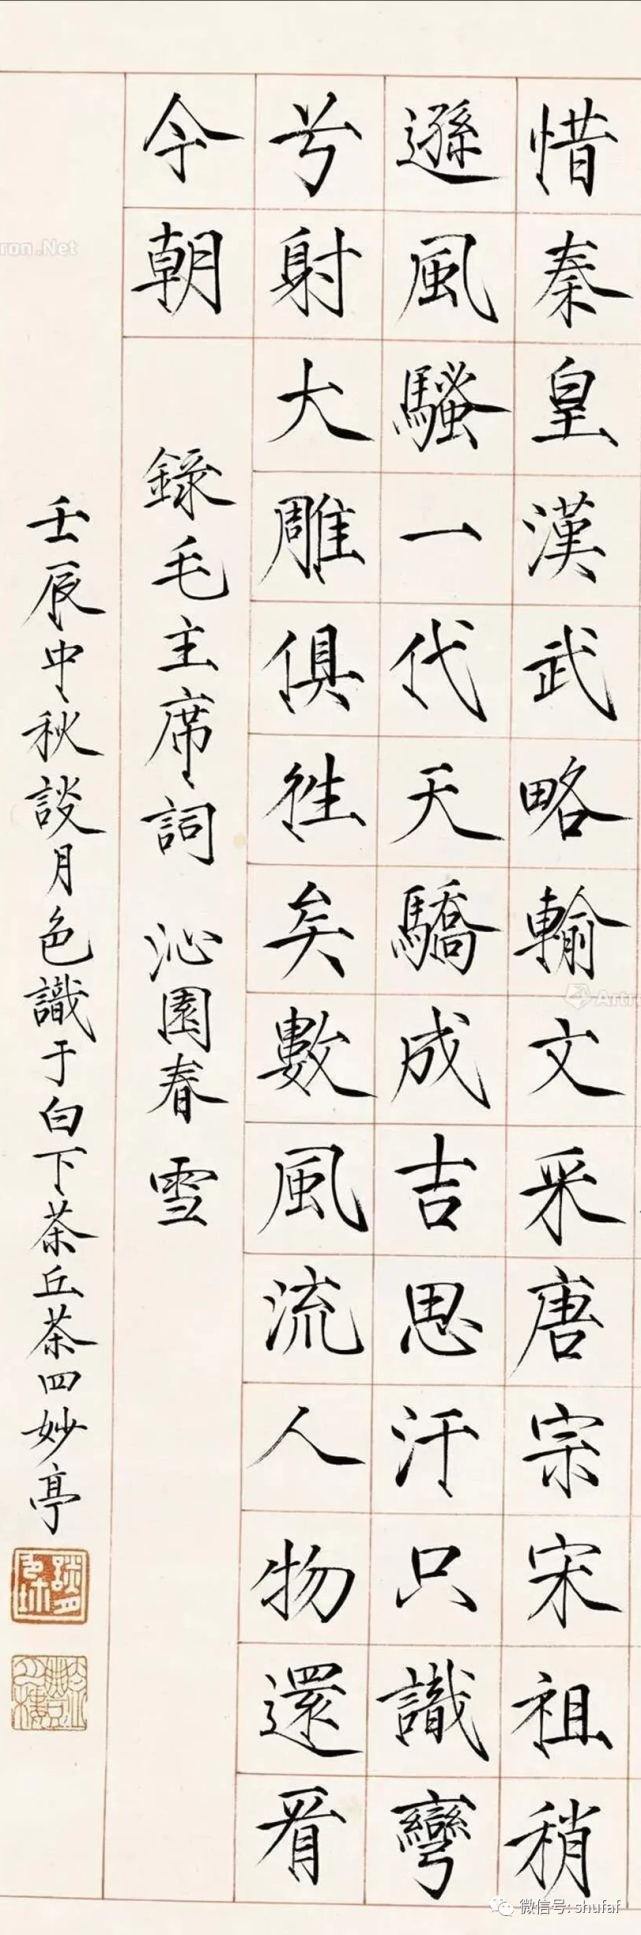 惜秦皇漢武略輸文采唐宗宋祖稍
遜風騷一代天驕成吉思汗只識彎
弓射大雕俱徃矣數風流人物還看
今朝 錄毛主席詞 沁園春 雪
壬辰中秋談月色識于白下茶丘茶四妙亭
tron.Net
Artr
微信号: shufaf